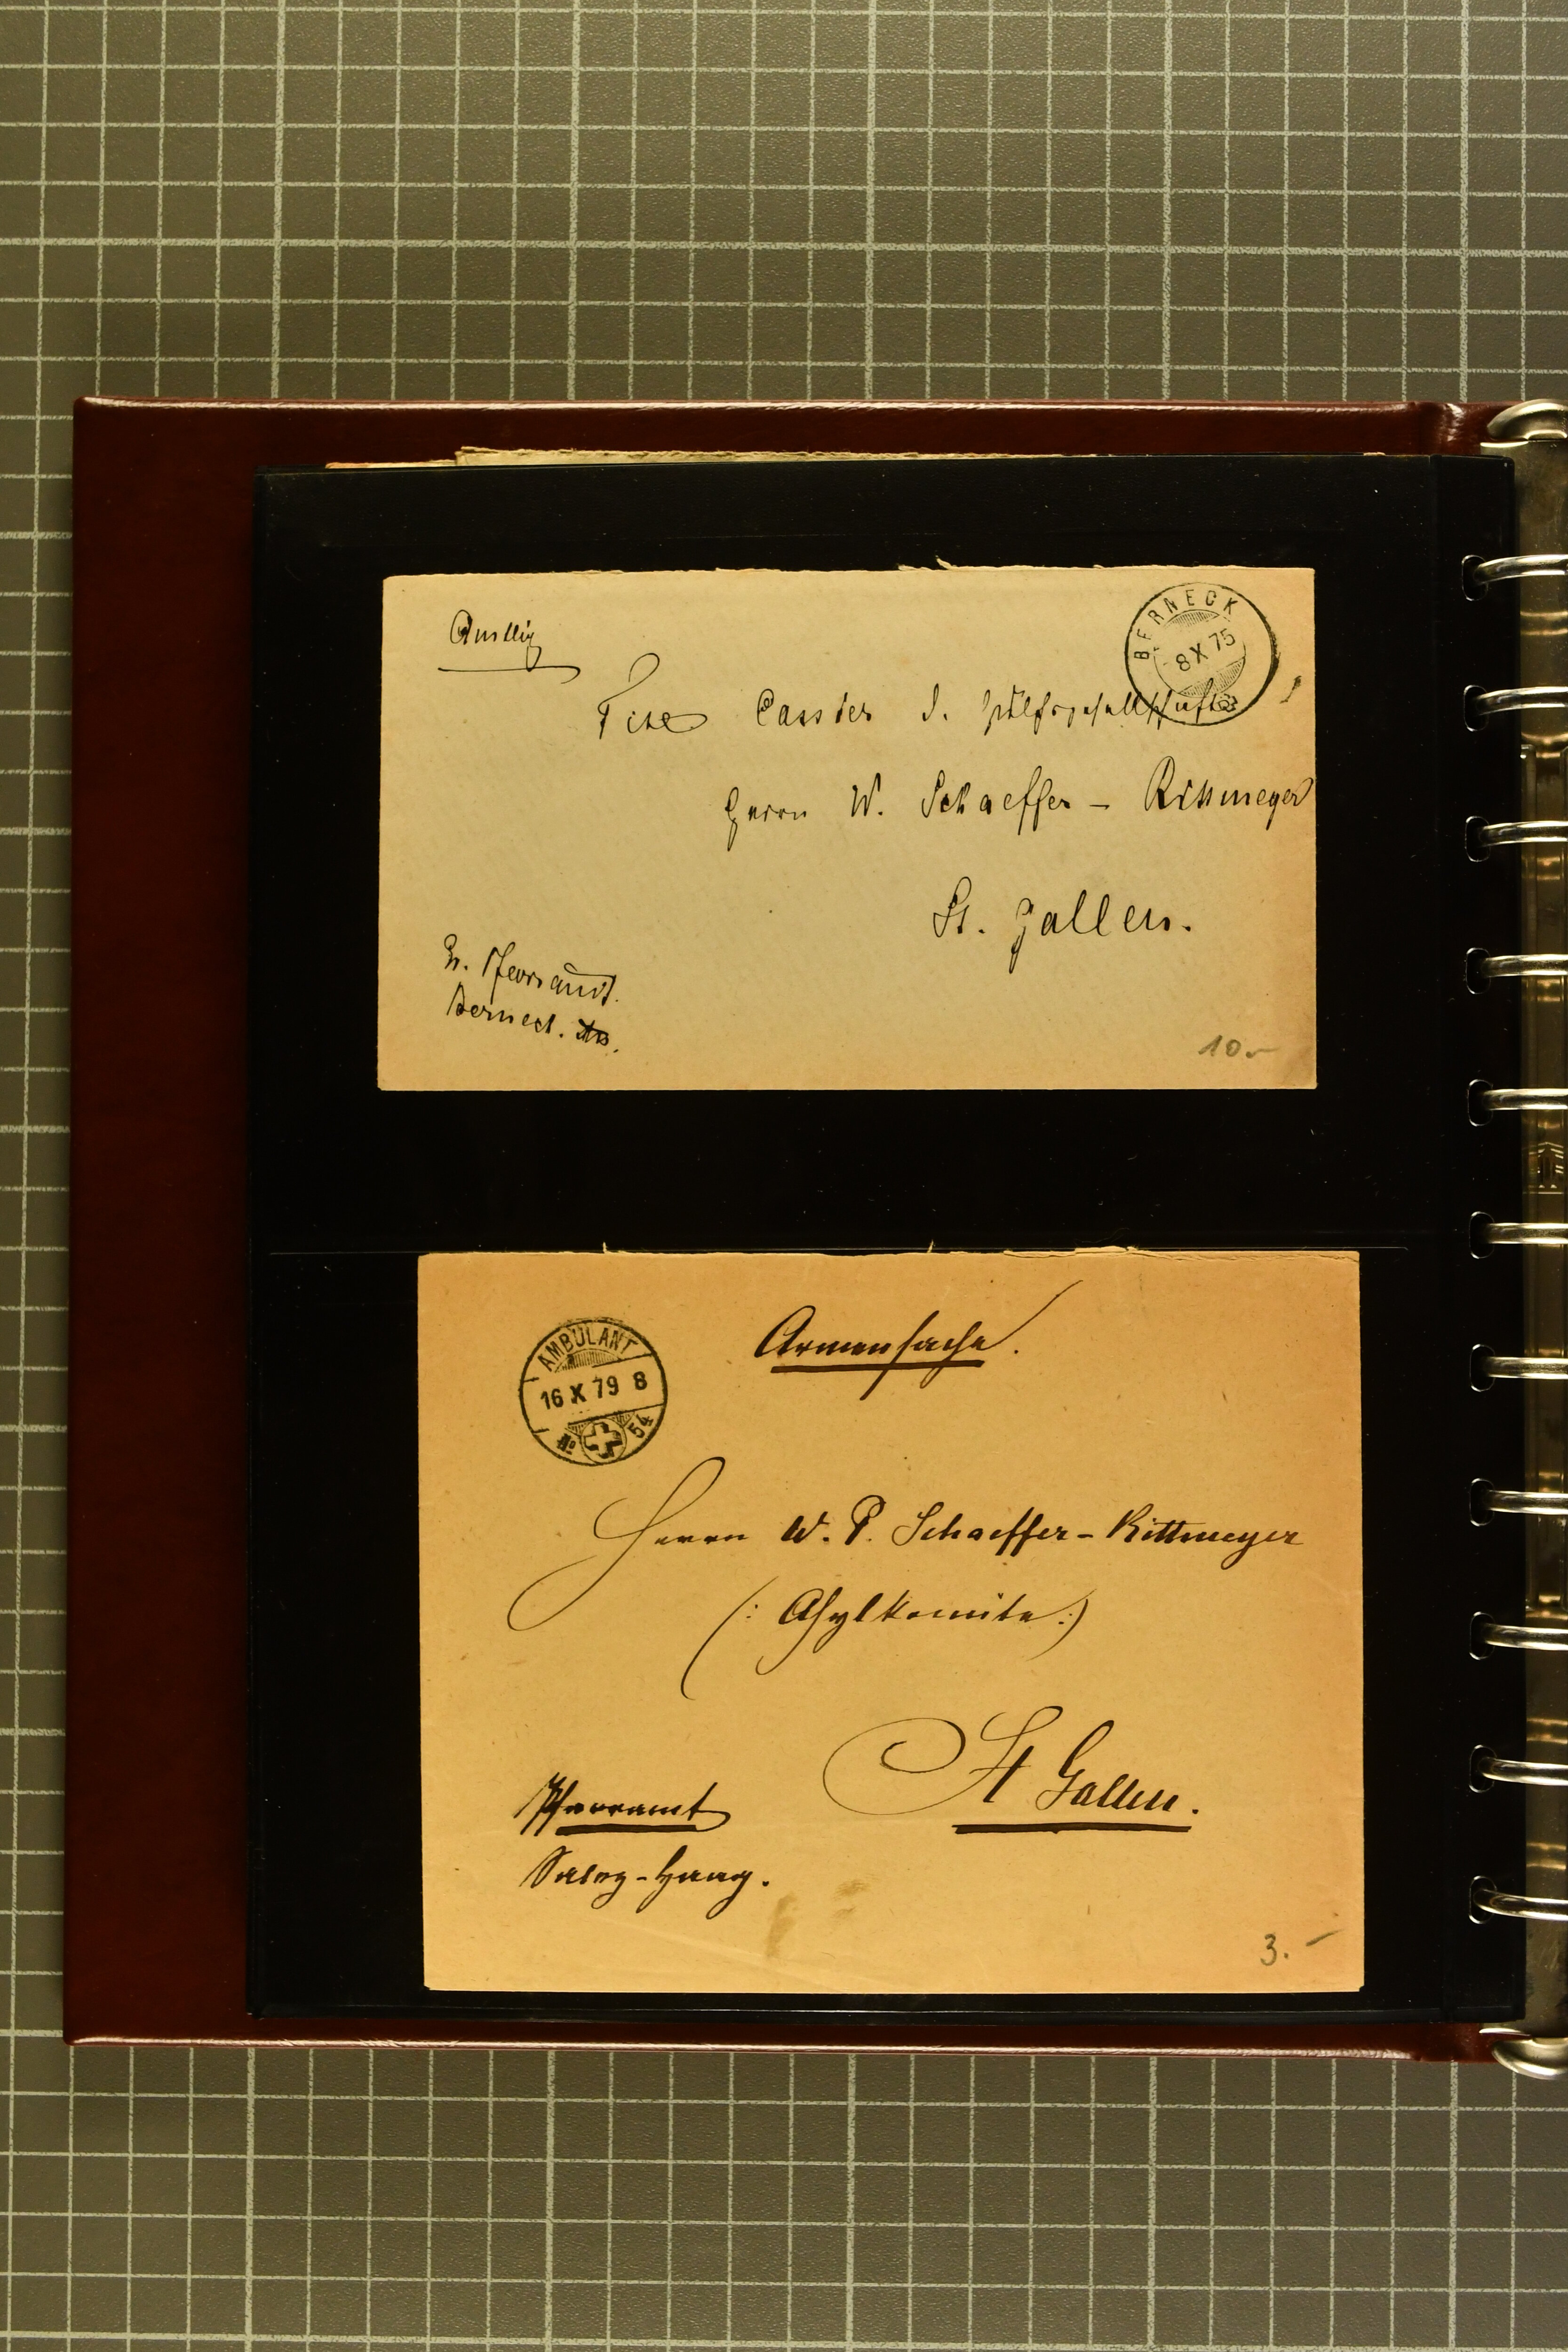 Amtlich
BERNECK
8 X 75
Cassier d. Hülfsgesellschaft
Herrn W. Schaeffer - Rittmeyer
St. Gallen.
Ev. Pfarramt.
Berneck.
10.-
Armensache.
AMBULANT
16 X 79 8
No 54
Herrn W. P. Schaeffer - Rittmeyer
(: Asylkomite :)
St Gallen.
Pfarramt
Salez - Haag.
3.-